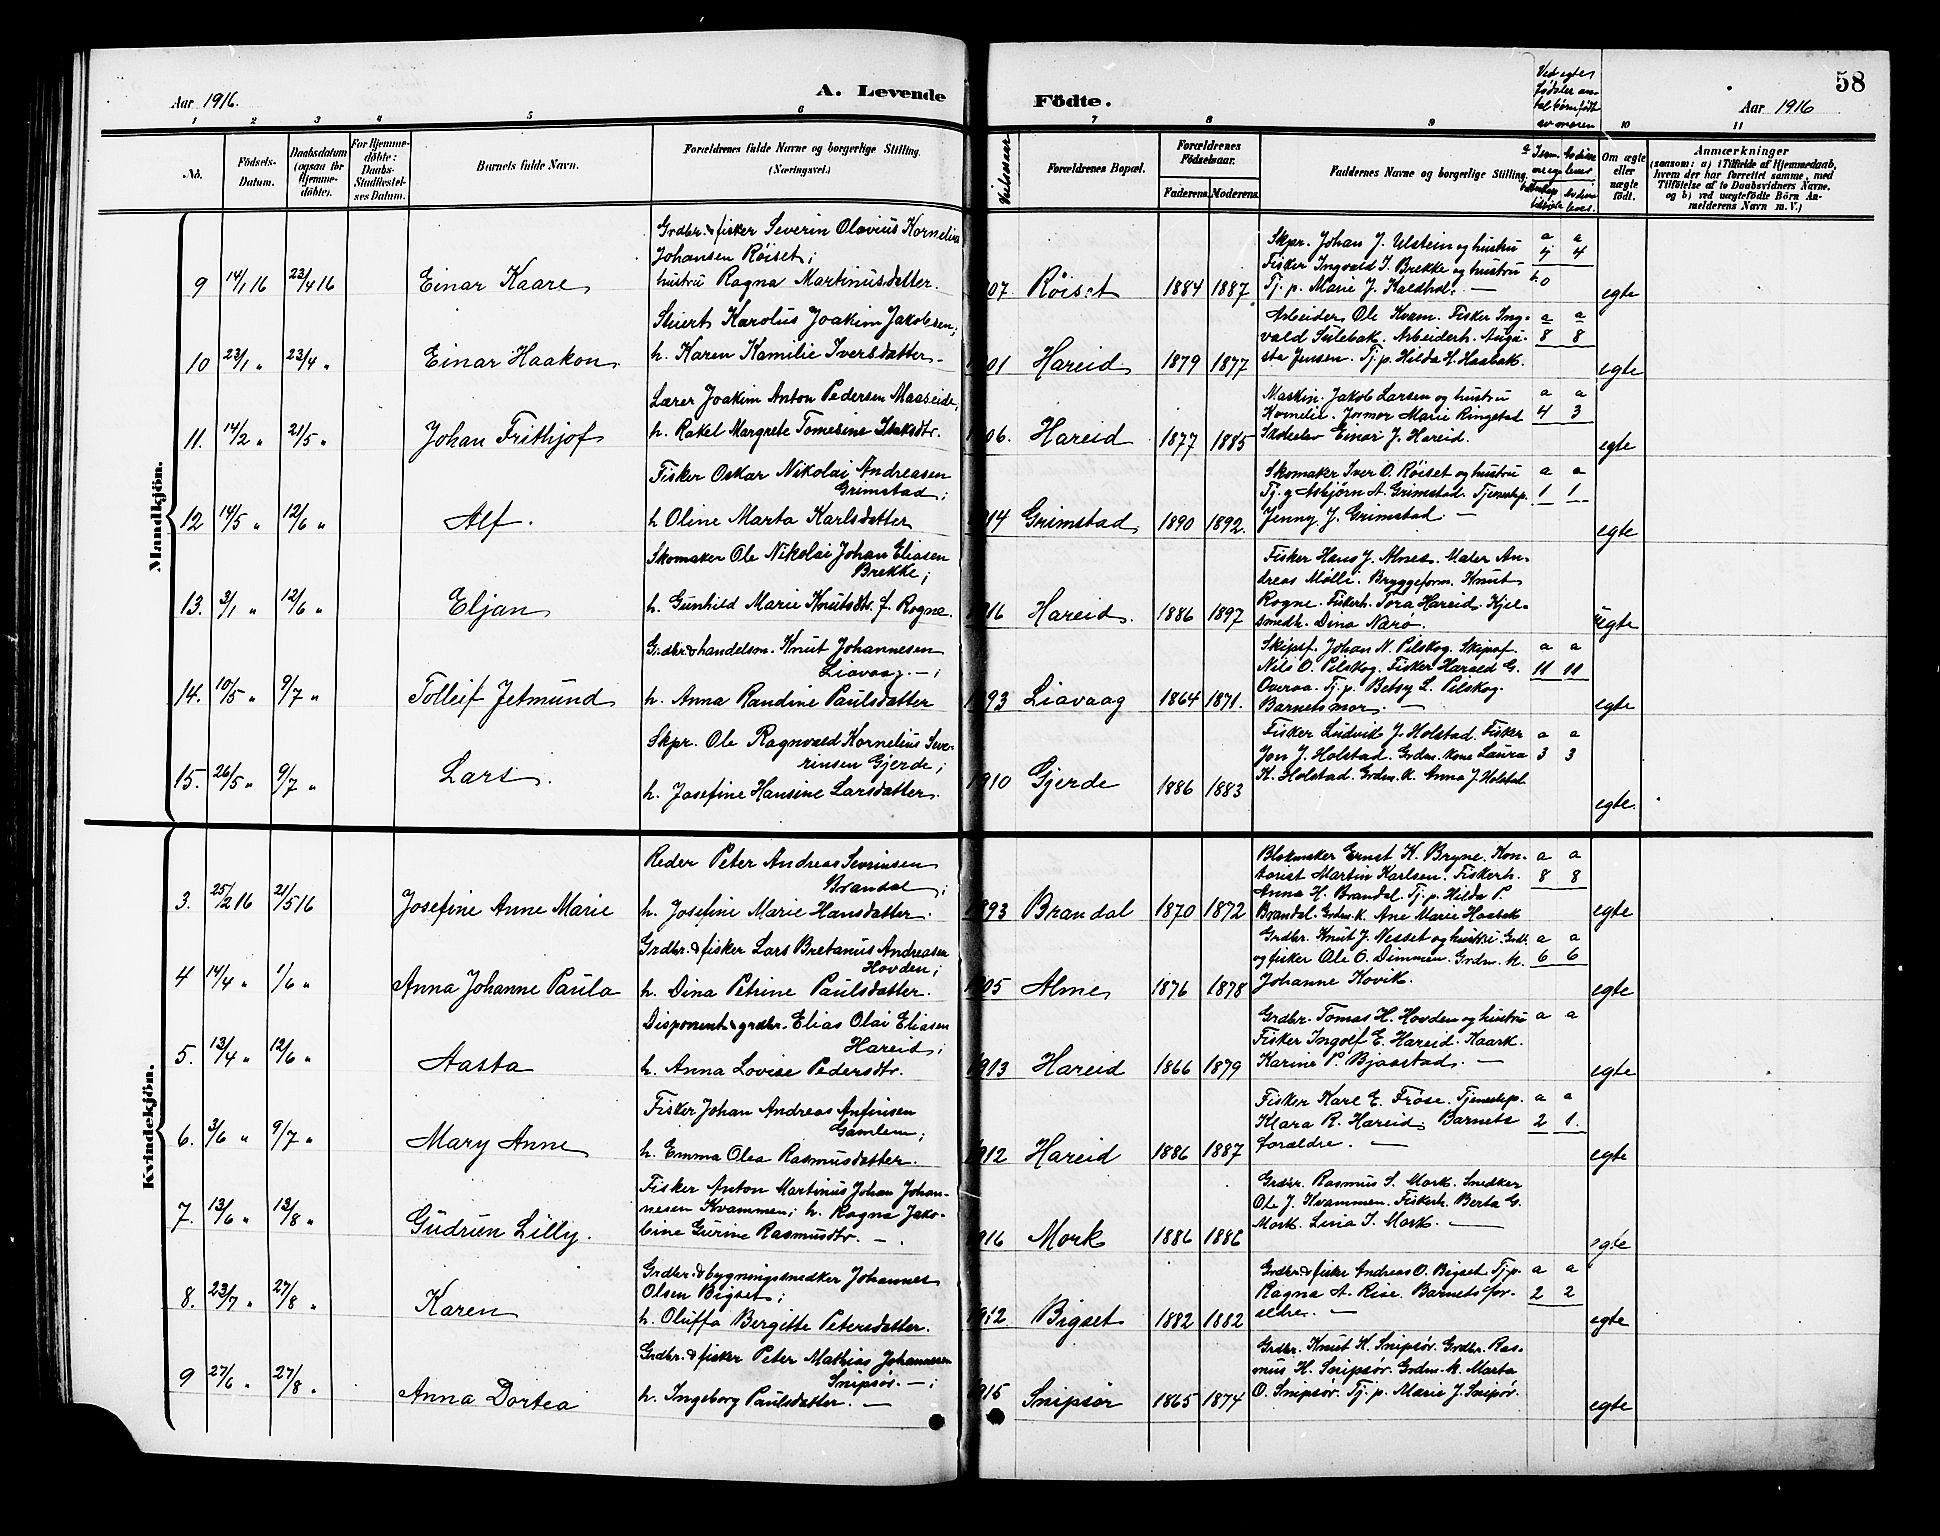 Aar 1916.
A. Levende
1 2 3 4 5 6
No.
Födsels-Datum.
Daabsdatum (ogsaa for Hjemme-döbte).
For Hjemme-döbte: Daabs-Stadfæstel-ses Datum.
Barnets fulde Navn.
Forældrenes fulde Navne og borgerlige Stilling.
(Næringsvei.)
Mandkjön.
Grdbr. & fisker Severin Olavius Kornelius
Johansen Röiset;
9 14/1 16 23/4 16 Einar Kaare hustru Ragna Martinusdatter.
Karolus Joakim Jakobsen;
10 23/1 " 23/4 " Einar Haakon h. Karen Kamilie Iversdatter
Lærer Joakim Anton Pedersen Maaseide,
11. 14/2 " 21/5 " Johan Frithjof h. Rakel Margrete Tomesine
Fisker Oskar Nikolai Andreasen
Grimstad;
12 14/5 " 12/6 " Alf. h Oline Marta Karlsdatter
Skomaker Ole Nikolai Johan Eliasen
Brekke;
13. 3/1 " 12/6 " Eljan h. Gunhild Marie Knutsdtr. f. Rogne.
Grdbr. & handelsm. Knut Johannesen
Liavaag. —;
14. 10/5 " 9/7 " Tolleif Jetmund h. Anna Randine Paulsdatter
Skpr. Ole Ragnvald Kornelius Seve-
rinsen Gjerde;
15. 26/5 " 9/7 " Lars. h. Josefine Hansine Larsdatter.
Kvindekjön.
Reder Peter Andreas Severinsen
Brandal;
3. 25/2 16 21/5 16 Josefine Anne Marie h. Josefine Marie Hansdatter.
Grdbr. & fisker Lars Bretanus Andreasen
Hovden;
4 14/4 " 1/6 " Anna Johanne Paula h. Dina Petrine Paulsdatter.
Disponent & grdbr. Elias Olai Eliasen
Hareid;
5. 13/4 " 12/6 " Aasta h. Anna Lovise Pedersdtr.
Fisker Johan Andreas Anfinsen
Gamlem;
6. 3/6 " 9/7 " Mary Anne h. Emma Olea Rasmusdatter.
Fisker Anton Martinus Johan Johan-
nesen Kvammen; h. Ragna Jako-
7. 13/6 " 13/8 " Gudrun Lilly. bine Gurine Rasmusdtr. —
Grdbr. & bygningssnedker Johannes
Olsen Bigset;
8. 23/7 " 27/8 " Karen h. Oluffa Bergitte Petersdatter.
Grdbr. & fisker Peter Mathias Johannesen
Snipsør. —;
9 27/6 " 27/8 " Anna Dortea h. Ingeborg Paulsdatter. —
58
Födte.
Aar 1916
7 8 9 10 11
Vielsesaar
Forældrenes Bopæl.
Forældrenes Födselsaar.
Faderens. Moderens.
Faddernes Navne og borgerlige Stilling.
Ved egte fødsler an-tal børn født av moren
Om ægte eller uægte födt.
Anmærkninger
(saasom: a) i Tilfælde af Hjemmedaab,
hvem der har forrettet samme, med
Tilföielse af to Daabsvidners Navne,
og b) ved uægtefödte Börn An-
melderens Navn m. V.)
Skpr. Johan J. Ulstein og hustru a a
Fisker Ingvald I. Brekke og hustru 4
07 Röiset 1884 1887 Tj. p. Marie J. Kaldhol. — b.0 egte
Arbeider Ole Kvam. Fisker Ing- a a
vald Sulebak. Arbeiderh. Augu- 8 8
01 Hareid 1879 1877 sta Jensen. Tj. p. Hilda H. Haabak. egte
Maskin. Jakob Larsen og hustru a a
Kornelie. Jormor Marie Ringstad 4 3
06. Hareid 1877 1885 Einar J. Hareid. egte
Skomaker Iver O. Röiset og hustru a a
Tj. g Asbjørn A. Grimstad. Tjenestep. 1 1
14 Grimstad 1890 1892. Jenny J. Grimstad. — egte
Fisker Hans J. Alnes. Maler An-
dreas Mølli. Bryggeform. Knut
16 Hareid. 1886 1897 Rogne. Fiskerh. Tora Hareid. Kjel-
smedh. Dina Narø. uegte
Skipsf. Johan N. Pilskog. Skipsf. a a
Nils O. Pilskog. Fisker Harald G. 11 11
93 Liavaag 1864 1871. Overaa. Tj. p. Betsy L. Pilskog.
Barnets mor. — egte
Fisker Ludvik J. Holstad. Fisker a a
Jon J. Holstad. Grdm. kone Laura 3 3
10 Gjerde 1886 1883 K. Holstad. Grdm. K. Anna J. Holstad egte.
Blokmaker Ernst K. Bryne. Kon- a a
torist Martin Karlsen. Fiskerh. 8 8
1893 Brandal 1870 1872 Anna H. Brandal. Tj. p. Hilda P.
Brandal. Grdm. K. Ane Marie Haabak egte
Grdbr. Knut J. Nesset og hustru. Grdbr. a a
og fisker Ole O. Dimmen. Grdm. k. 6 6
05 Alme 1876 1878 Johanne Kovik. egte
Grdbr. Tomas H. Hovden og hustru a a
Fisker Ingolf E. Hareid.
1903 Hareid 1866 1879 Karine P. Bjaastad. — egte
Fisker Karl E. Frøse. Tjenestep. a a
Klara R. Hareid. Barnets 2 1.
1912 Hareid 1886 1887 forældre. — egte
Grdbr. Rasmus S. Mork. Snedker
Ole J. Kvammen. Fiskerh. Berta G.
16 Mork 1886 1886 Mork. Lina I. Mork. — egte
Grdbr. & fisker Andreas O. Bigset. Tj.p. a a
Ragna A. Rise. Barnets for- 2 2
1912 Bigset 1882 1882 ældre. — egte
Grdbr. Knut H. Snipsør. Grdbr. Ras-
mus H. Snipsør. Grdm. k. Marta
1915 Snipsør 1865 1874 O. Snipsør. Tj. p. Marie J. Snipsør. egte